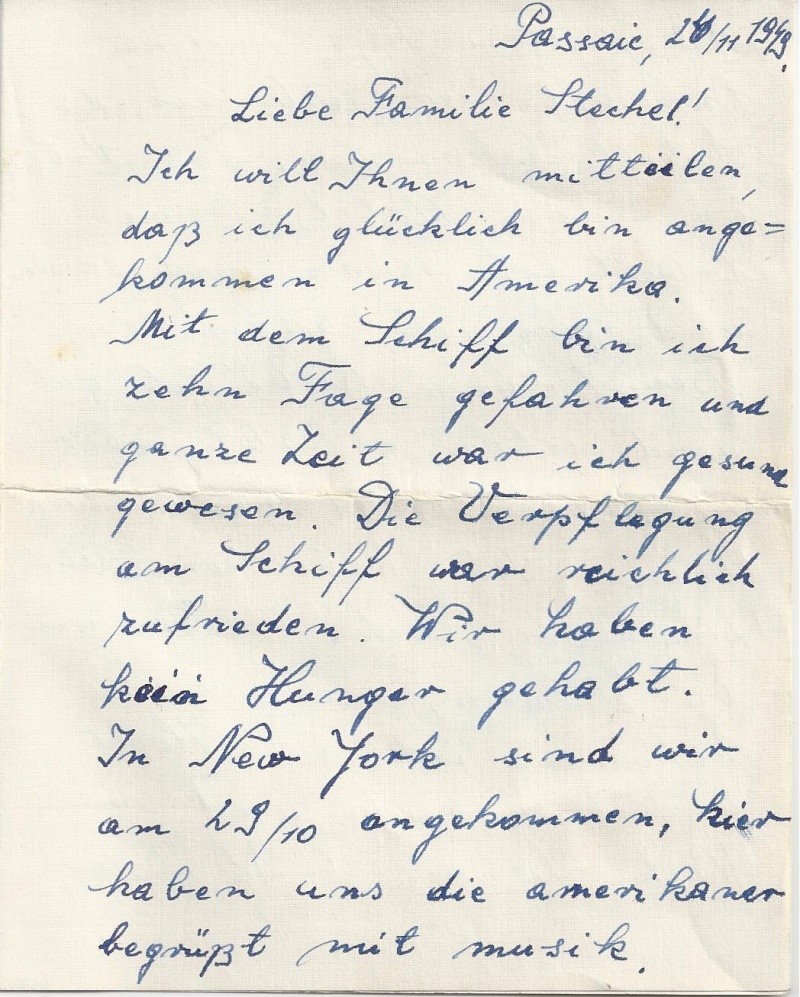 Passaic, 26/11 1949.
Liebe Familie Stechel!
Ich will Ihnen mitteilen,
daß ich glücklich bin ange=
kommen in Amerika.
Mit dem Schiff bin ich
zehn Tage gefahren und
ganze Zeit war ich gesund
gewesen. Die Verpflegung
am Schiff war reichlich
zufrieden. Wir haben
kein Hunger gehabt.
In New York sind wir
am 29/10 angekommen, hier
haben uns die amerikaner
begrüßt mit musik.